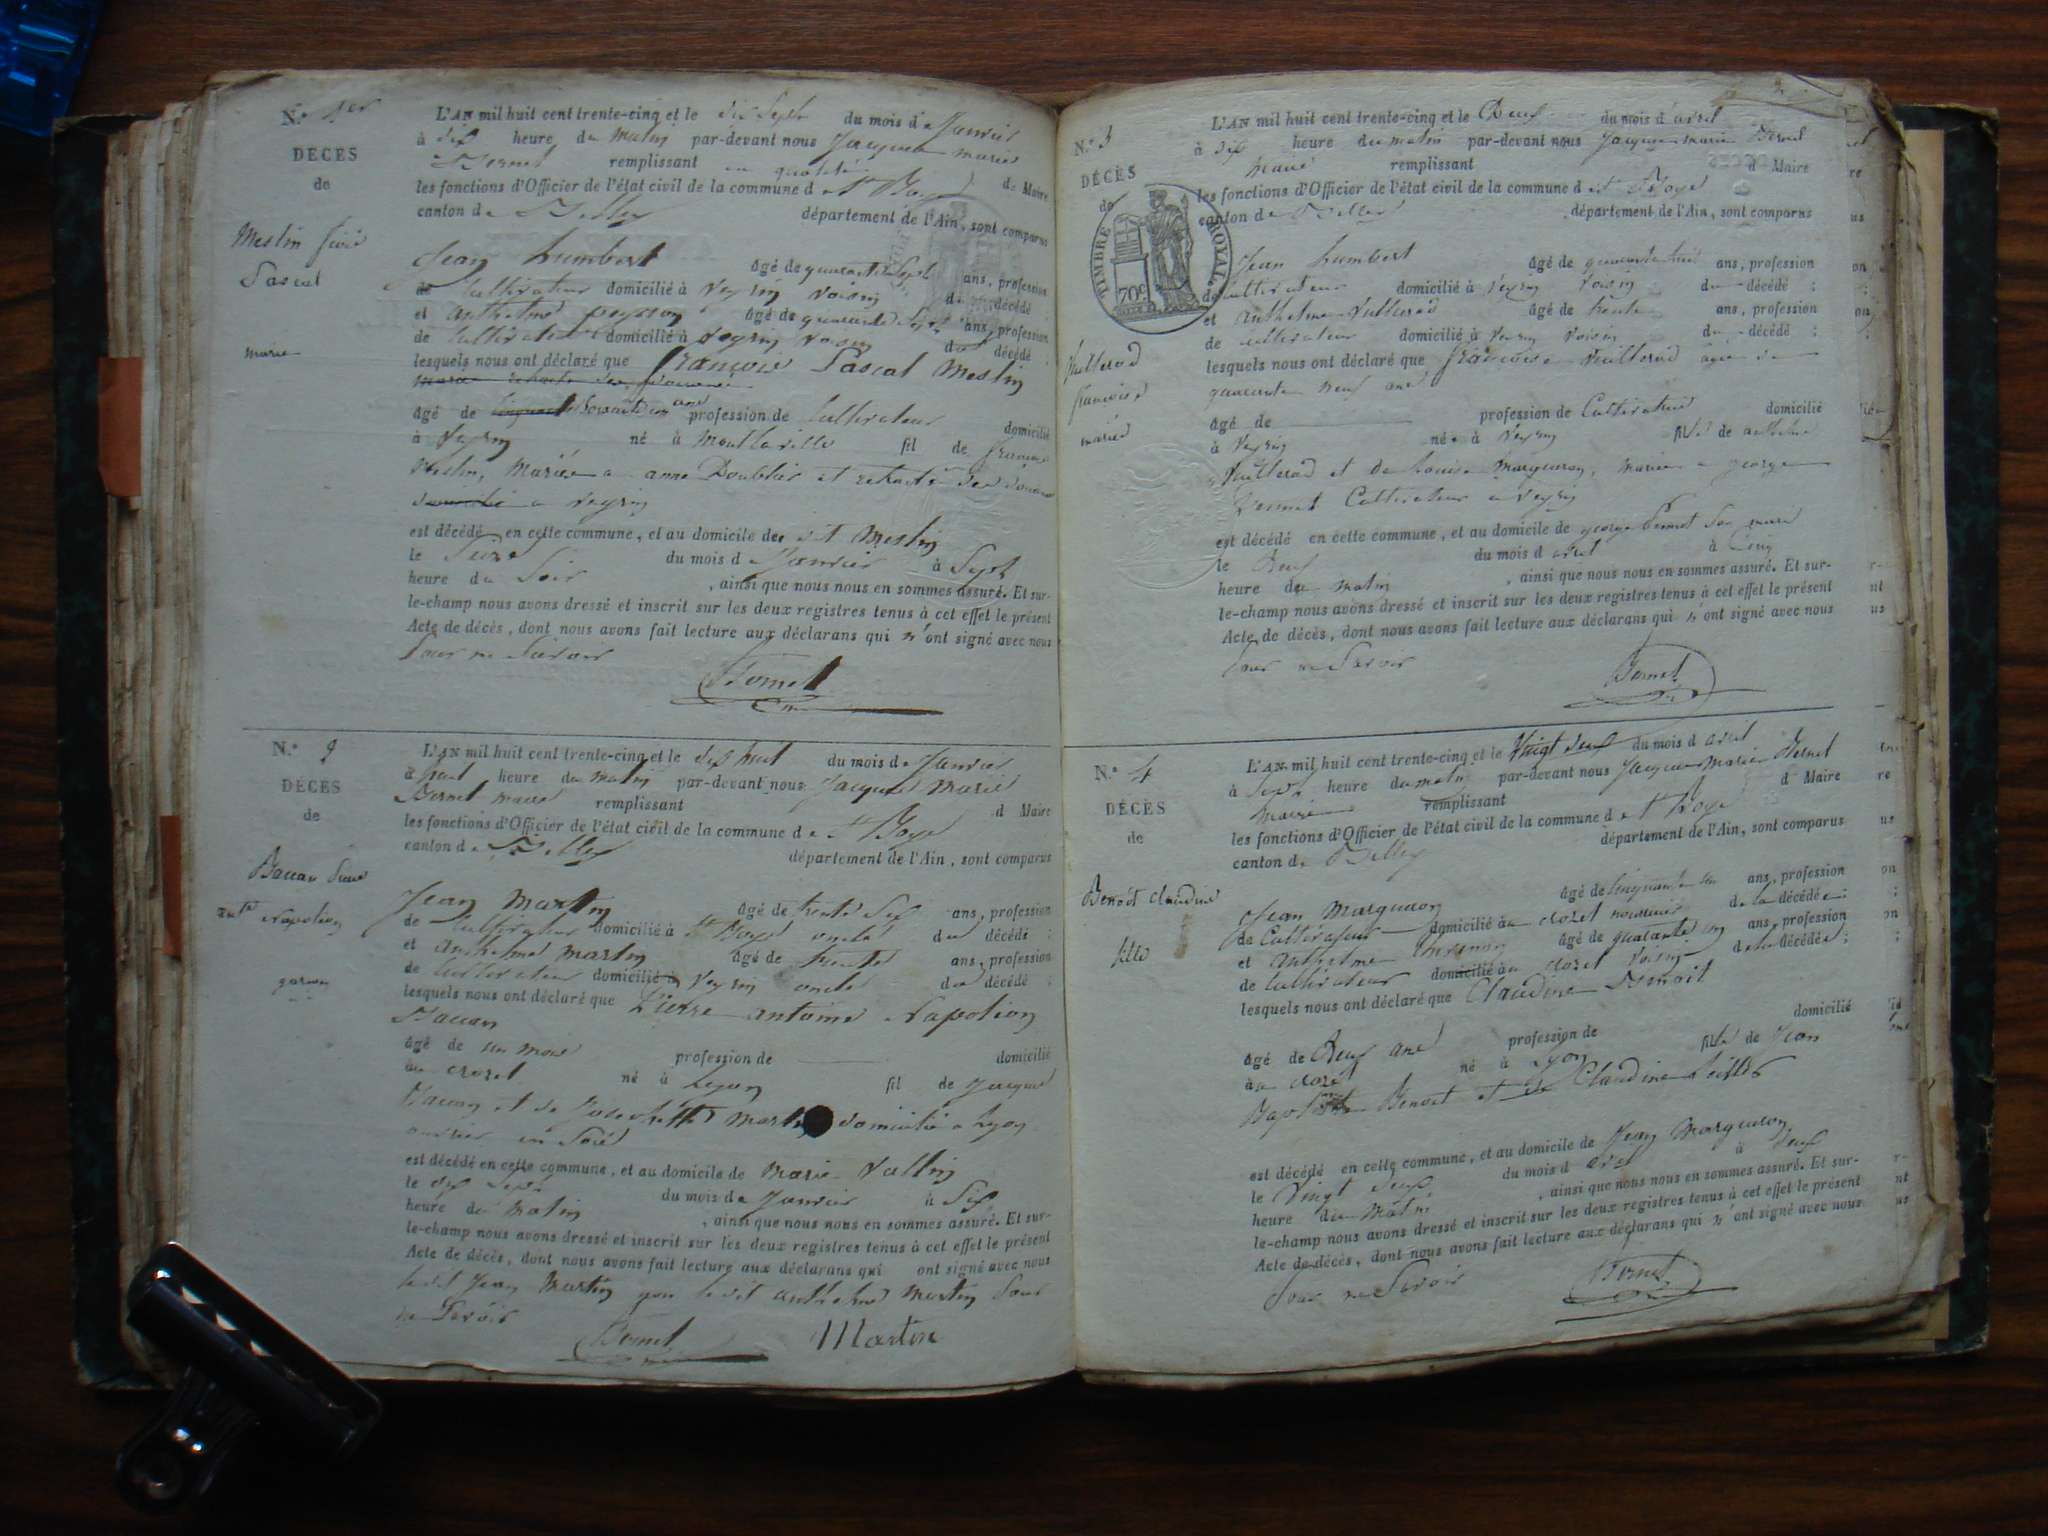 N.° 1er
DÉCÈS
de
Meslin
Pascal
marié
L'AN mil huit cent trente-cinq et le dix Sept du mois de Janvier
à dix heure du matin par-devant nous Jacques marie
Bornet remplissant en qualité de Maire
les fonctions d'Officier de l'état civil de la commune de St Boys
canton de Belley département de l'Ain, sont comparus
Jean humbert âgé de quarante Sept ans, profession
de Cultivateur domicilié à Veyrin voisin du décédé :
et anthelme peysson âgé de quarante ans, profession
de Cultivateur domicilié à Veyrin voisin du décédé :
lesquels nous ont déclaré que françois Pascal Meslin
âgé de ans profession de Cultivateur domicilié
à Veyrin né à fil de françois
Meslin, Mariée a anne Doublier et retraité des
a Veyrin
est décédé en cette commune, et au domicile de dit Meslin
le Seize du mois de Janvier à Sept
heure du Soir , ainsi que nous nous en sommes assuré. Et sur-
le-champ nous avons dressé et inscrit sur les deux registres tenus à cet effet le présent
Acte de décès, dont nous avons fait lecture aux déclarans qui n'ont signé avec nous
Pour ne Savoir
Bornet
N.° 2
DÉCÈS
de
Baccon Pierre
ant.e Napoléon
garçon
L'AN mil huit cent trente-cinq et le dix huit du mois de Janvier
à huit heure du matin par-devant nous Jacques Marie
Bornet maire remplissant d Maire
les fonctions d'Officier de l'état civil de la commune de St Boys
canton de Belley département de l'Ain, sont comparus
Jean Martin âgé de trente Six ans, profession
de Cultivateur domicilié à St Boys oncle du décédé :
et anthelme martin âgé de trente ans, profession
de Cultivateur domicilié à Veyrin oncle du décédé :
lesquels nous ont déclaré que Pierre antoine Napoléon
Baccon
âgé de un mois profession de domicilié
au crozet né à Lyon fil de Jacques
Baccon et de Josephette Martin domicilié a Lyon
ouvrier en Soie
est décédé en cette commune, et au domicile de Marie Vallin
le dix Sept du mois de Janvier à Six
heure du matin , ainsi que nous nous en sommes assuré. Et sur-
le-champ nous avons dressé et inscrit sur les deux registres tenus à cet effet le présent
Acte de décès, dont nous avons fait lecture aux déclarans qui ont signé avec nous
ledit Jean Martin non ledit anthelme Martin Pour
ne Savoir
Bornet Martin
N.° 3
DÉCÈS
de
TIMBRE ROYAL
70c
Vuillerod
françoise
mariée
L'AN mil huit cent trente-cinq et le Deux du mois d'avril
à dix heure du matin par-devant nous Jacques marie Bornet
Maire remplissant d Maire
les fonctions d'Officier de l'état civil de la commune de St Boys
canton de Belley département de l'Ain, sont comparus
Jean humbert âgé de quarante huit ans, profession
de cultivateur domicilié à Veyrin voisin du décédé :
et anthelme Vuillerod âgé de trente ans, profession
de cultivateur domicilié à Veyrin voisin du décédé :
lesquels nous ont déclaré que françoise Vuillerod agée de
quarante neuf ans
âgé de profession de Cultivateur domicilié
à Veyrin née à Veyrin fille de anthelme
Vuillerod et de Louise Marqueron, mariée a george
Bornet Cultivateur a Veyrin
est décédé en cette commune, et au domicile de george Bornet Son mari
le Deux du mois d avril à Cinq
heure du matin , ainsi que nous nous en sommes assuré. Et sur-
le-champ nous avons dressé et inscrit sur les deux registres tenus à cet effet le présent
Acte de décès, dont nous avons fait lecture aux déclarans qui n'ont signé avec nous
Pour ne Savoir
Bornet
N.° 4
DÉCÈS
de
Benoit Claudine
fille
L'AN mil huit cent trente-cinq et le Vingt deux du mois d avril
à Sept heure du matin par-devant nous Jacques Marie Bornet
Maire remplissant d Maire
les fonctions d'Officier de l'état civil de la commune de St Boys
canton de Belley département de l'Ain, sont comparus
Jean Marqueron âgé de Cinquante ans, profession
de Cultivateur domicilié au crozet nourricier de la décédée :
et anthelme âgé de quarante cinq ans, profession
de Cultivateur domicilié au crozet voisin de la décédée :
lesquels nous ont déclaré que Claudine Benoit
âgé de Deux ans profession de domicilié
au crozet né à Lyon fille de Jean
Baptiste Benoit et de Claudine
est décédé en cette commune, et au domicile de Jean Marqueron
le Vingt deux du mois d avril à deux
heure du Matin , ainsi que nous nous en sommes assuré. Et sur-
le-champ nous avons dressé et inscrit sur les deux registres tenus à cet effet le présent
Acte de décès, dont nous avons fait lecture aux déclarans qui n'ont signé avec nous
Pour ne Savoir
Bornet